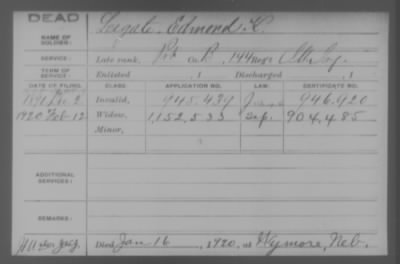 DEAD
NAME OF SOLDIER: Edmond K.
SERVICE: Late rank, Pvt Co. B, 144 Regt Ills Inf.
TERM OF SERVICE: Enlisted , 1 Discharged , 1
DATE OF FILING. CLASS. APPLICATION NO. LAW. CERTIFICATE NO.
1891 Invalid, 946.920
1920 Feb 12 Widow, 1,152,533 904,485
Minor,
ADDITIONAL SERVICES:
REMARKS:
Died Jan 16 , 1920, at Wymore, Neb.